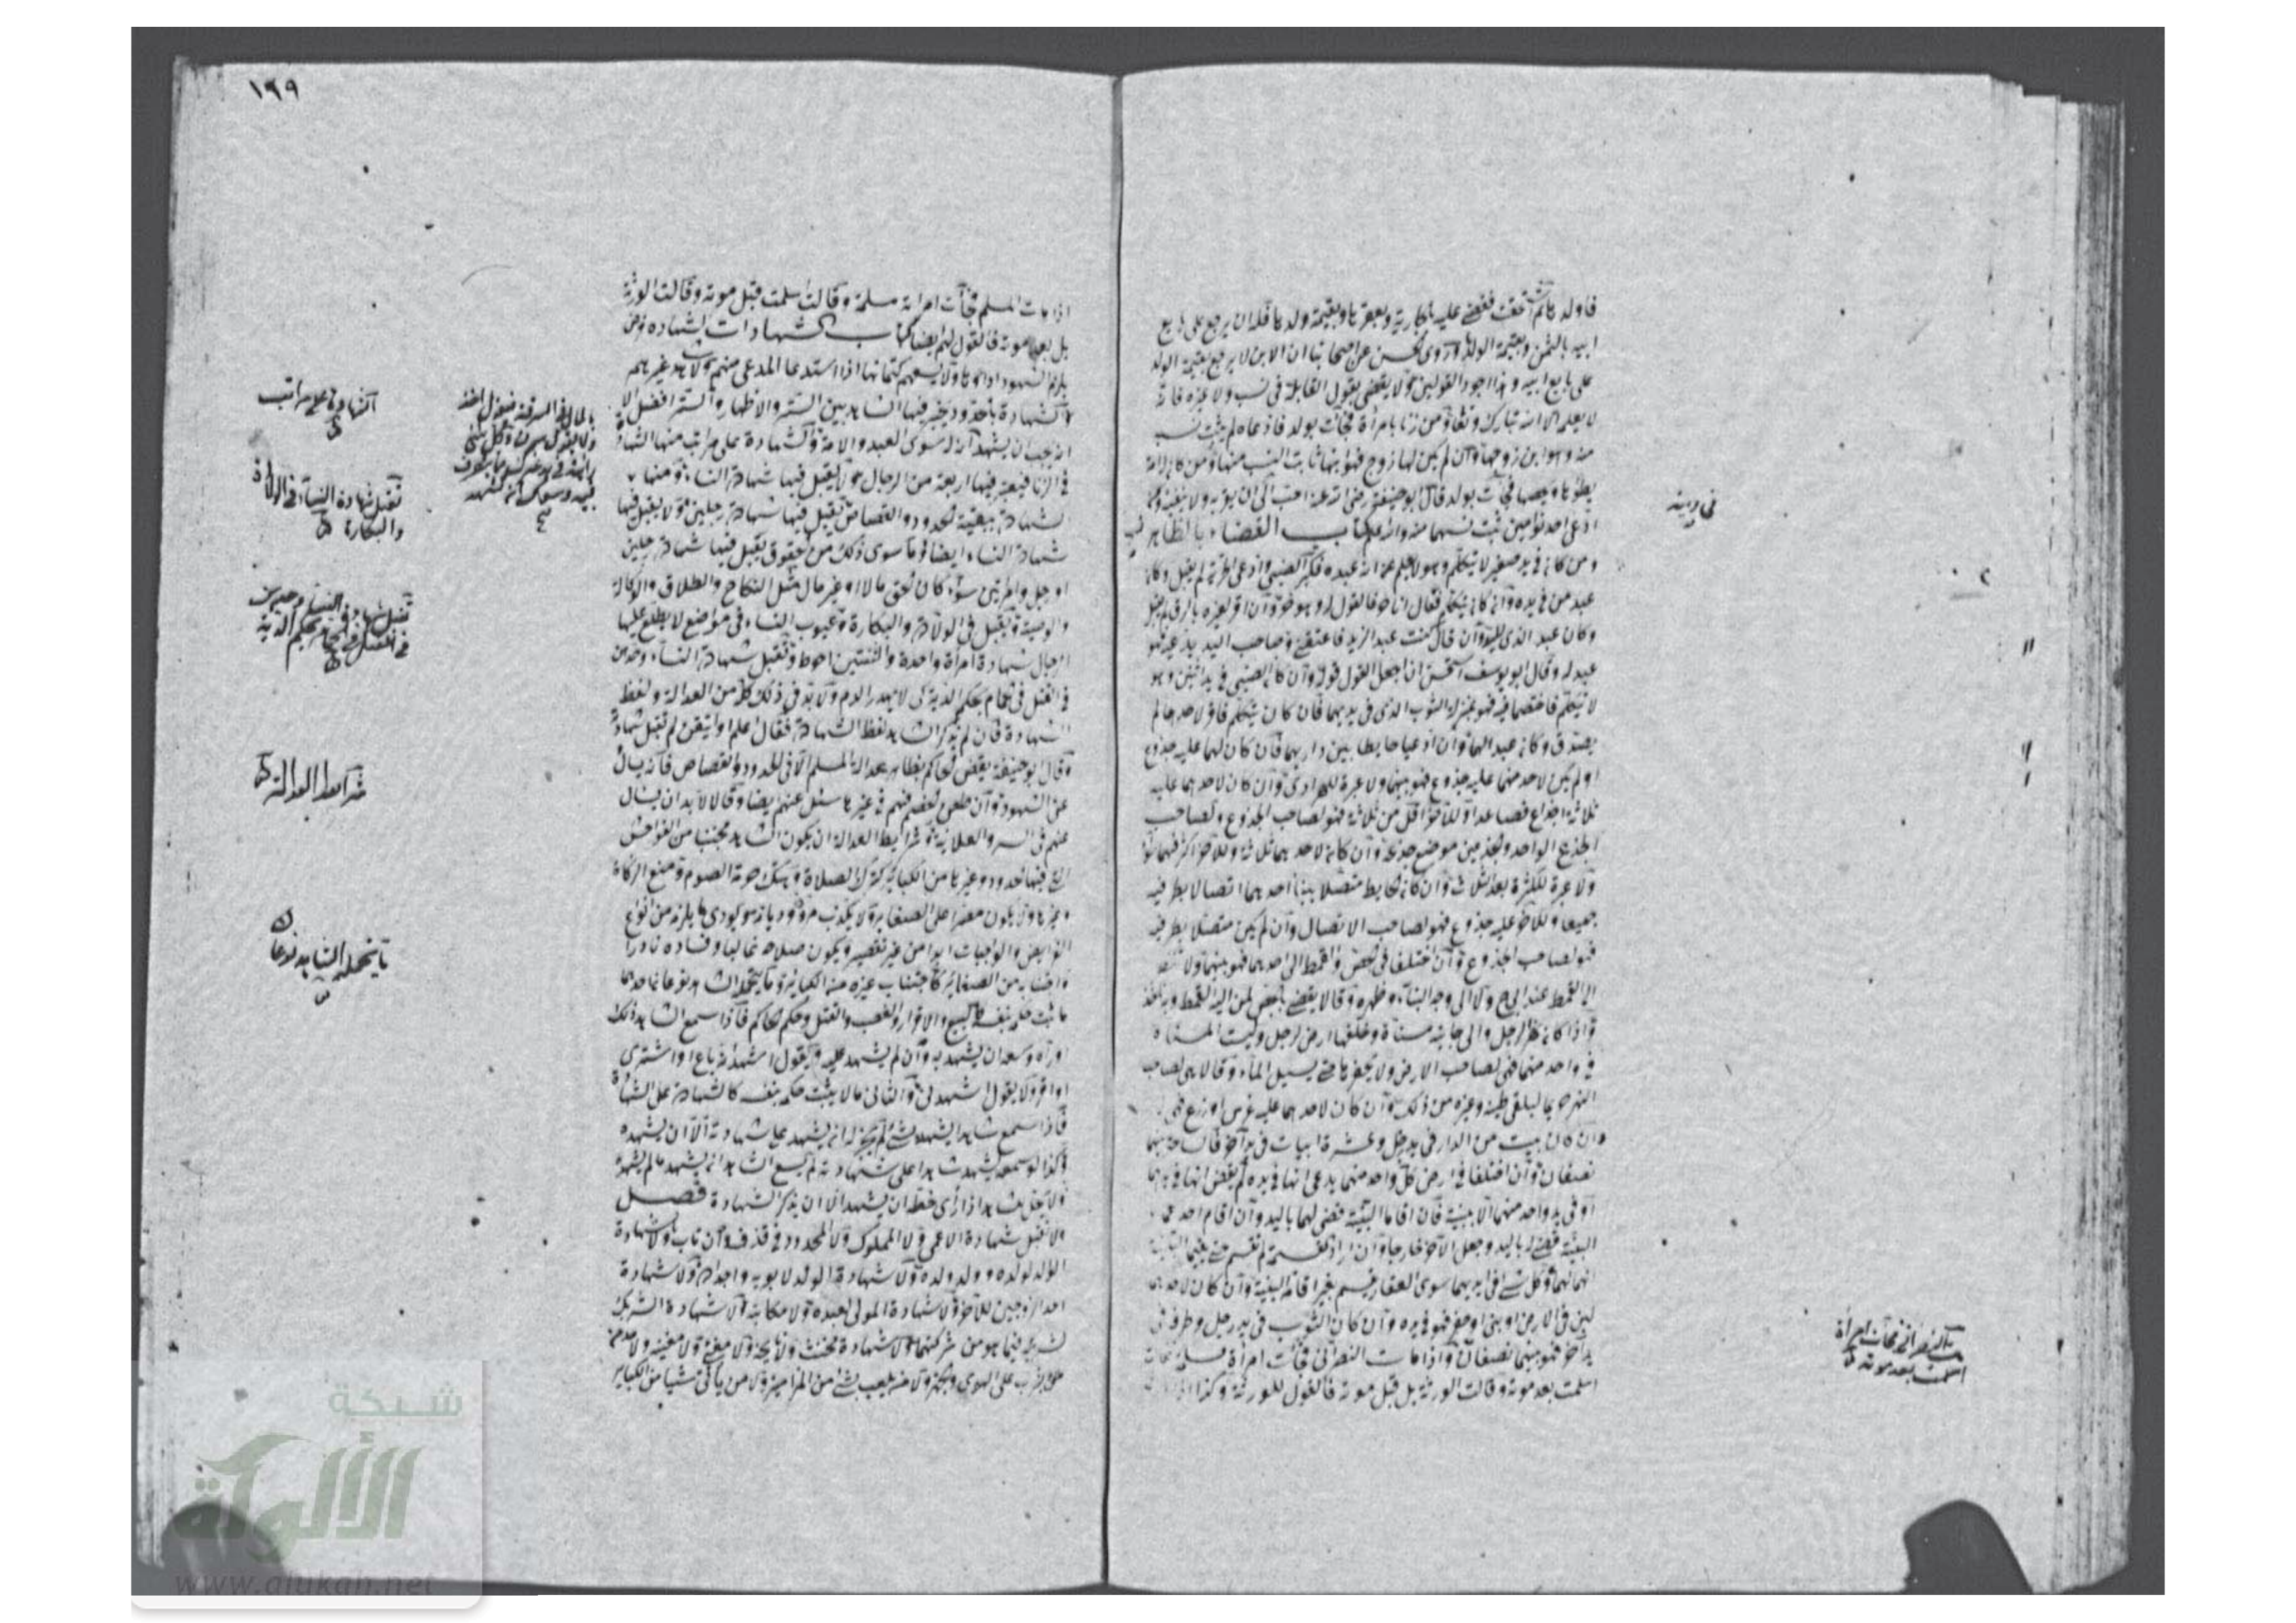 فاولدها ثم استحقت فقضى عليه بالجارية وبعقرها وبقيمة ولدها فله ان يرجع على بايع
ابيه بالثمن وبقيمة الولد وروى الحسن عن اصحابنا ان الابن لا يرجع بقيمة الولد
على بايع ابيه وهذا اجود القولين ولا يقضى بقول القابلة في نسب ولا غيره فانه
لا يعلمه الا الله تبارك وتعالى ومن زنا بامرأة فجاءت بولد فادعاه لم يثبت نسبه
منه وهو ابن زوجها وان لم يكن لها زوج فهو ابنها ثابت النسب منها ومن كان له امة
يطؤها فجاءت بولد قال ابو حنيفة رضي الله عنه احب الى ان يقر به ولا ينفيه
كتاب القضاء بالظاهر
ومن كان في يده صغير لا يتكلم وهو لا يعلم عنه انه عبده فكبر الصبي وادعى الحرية لم يقبل وكان
عبد من في يده وان كان يتكلم فقال انا حر فالقول له وهو حر وان اقر لغيره بالرق لم يقبل
وكان عبد الذي اليد وان قال كنت عبد الزيد فاعتقنى وصاحب اليد يدعيه فهو
عبد له وقال ابو يوسف استحسن ان اجعل القول قوله وان كان الصبي في يد اثنين وهو
لا يتكلم فاختصما فيه فهو بمنزلة الثوب الذى في يديهما فان كان يتكلم فاقر لاحدهما لم
يصدق وكان عبد الهما وان ادعيا حايطا بين داريهما فان كان لهما عليه جذوع
او لم يكن لاحد منهما عليه جذوع فهو بينهما ولا عبرة للهرادى وان كان لاحدهما عليه
ثلاثة اجذاع فصاعدا وللآخر اقل من ثلاثة فهو لصاحب الجذوع ولصاحب
الجذع الواحد والجذعين موضع جذعه وان كان لاحدهما ثلاثة وللآخر اكثر فهما سواء
ولا عبرة للكثرة بعد الثلاث وان كان الحايط متصلا ببناء احدهما اتصالا بطرفيه
جميعا وللآخر عليه جذوع فهو لصاحب الاتصال وان لم يكن متصلا بطرفيه
فهو لصاحب الجذوع وان اختلفا في الخص والقمط الى احدهما فهو بينهما ولا ينظر
الى القمط عند ابي ح ولا الى وجه البناء وظهره وقالا يقضى بالخص لمن اليه القمط
واذا كان نهر الرجل والى جانبه مسناة وخلفها ارض لرجل وليست المسناة
في يد واحد منهما فهي لصاحب الارض ولا يحفرها حتى يسيل الماء وقالا هي لصاحب
النهر حريما لملقى طينه وغيره من ذلك وان كان لاحدهما عليه غرس او زرع فهى له
وان كان بيت من الدار في يد رجل وعشرة ابيات في يد آخر فالساحة بينهما
نصفان وان اختلفا في ارض كل واحد منهما يدعى انها في يده لم يقض انها في يدهما
او في يد واحد منهما الا ببينة فان اقاما البينة قضى لهما باليد وان اقام احدهما
البينة قضى له باليد وجعل الآخر خارجا وان ارادا القسمة لم تقسم حتى يقيما البينة
انها لهما وكل شيء في ايديهما سوى العقار يقسم بغير اقامة البينة وان كان لاحدهما
لبن في الارض او بنى او حفر فهو في يده وان كان الثوب في يد رجل وطرفه في
يد آخر فهو بينهما نصفان واذا مات النصراني فجاءت امرأة مسلمة فقالت
اسلمت بعد موته وقالت الورثة بل قبل موته فالقول للورثة وكذا
في دينه
مات النصراني فجاءت امرأة
اسلمت بعد موته
١٩٩
اذا مات المسلم فجاءت امرأته مسلمة وقالت اسلمت قبل موته وقالت الورثة
بل بعد موته فالقول لهم ايضا كتاب الشهادات الشهادة فرض
يلزم الشهود اداؤها ولا يسعهم كتمانها اذا استدعا المدعى منهم
والشهادة بالحدود يخير فيها الشاهد بين الستر والاظهار والستر افضل الا
انه يجب ان يشهد انه له سوى العبد والامة والشهادة على مراتب منها الشهادة
في الزنا فيعتبر فيها اربعة من الرجال ولا يقبل فيها شهادة النساء ومنها
الشهادة ببقية الحدود والقصاص تقبل فيها شهادة رجلين ولا يقبل فيها
شهادة النساء ايضا وما سوى ذلك من الحقوق يقبل فيها شهادة رجلين
او رجل وامرأتين سواء كان الحق مالا او غير مال مثل النكاح والطلاق والوكالة
والوصية وتقبل في الولادة والبكارة وعيوب النساء في مواضع لا يطلع عليها
الرجال شهادة امرأة واحدة والثنتين احوط وتقبل شهادة النساء وحدهن
في القتل في الحمام بحكم الدية كى لا يهدر الدم ولا بد في ذلك كله من العدالة ولفظ
الشهادة فان لم يذكر الشاهد لفظ الشهادة فقال اعلم او اتيقن لم تقبل شهادته
وقال ابو حنيفة يقضى الحاكم بظاهر عدالة المسلم الا في الحدود والقصاص فانه يسأل
عن الشهود وان طعن الخصم فيهم في غيرها سئل عنهم ايضا وقالا لا بد ان يسأل
عنهم في السر والعلانية وشرايط العدالة ان يكون الشاهد مجتنبا من الفواحش
التى فيها الحدود وغيرها من الكبائر كترك الصلاة وهتك حرمة الصوم ومنع الزكاة
وغيرها ولا يكون مصرا على الصغاير ولا يكذب
الفرايض والواجبات ابدا من غير تقصير ويكون صلاحه غالبا وفساده نادرا
واجتنابه من الصغاير كاجتناب غيره من الكباير وما يتحمله الشاهد نوعان احدهما
ما يثبت حكمه بنفسه كالبيع والاقرار والغصب والقتل وحكم الحاكم فاذا سمع الشاهد ذلك
او رآه وسعه ان يشهد به وان لم يشهد عليه ويقول اشهد انه باع او اشترى
او اقر ولا يقول اشهدنى والثانى ما لا يثبت حكمه بنفسه كالشهادة على الشهادة
فاذا سمع شاهدا يشهد بشئ لم يجز له ان يشهد على شهادته الا ان يشهده
وكذا لو سمعه يشهد شاهدا على شهادته لم يسع الشاهد انه يشهد ما لم يشهده
ولا يحل لشاهد اذا رأى خطه ان يشهد الا ان يذكر الشهادة فصل
لا تقبل شهادة الاعمى ولا المملوك ولا المحدود في قذف وان تاب ولا شهادة
الوالد لولده وولد ولده ولا شهادة الولد لابويه واجداده ولا شهادة
احد الزوجين للآخر ولا شهادة المولى لعبده ولا مكاتبه ولا شهادة الشريك
لشريكه فيما هو من شركتهما ولا شهادة مخنث ولا نايحة ولا مغنى ولا مغنية ولا مدمن
ولا من يلعب بشئ من المزامير ولا من يأتى شيئا من الكباير
الشهادة على مراتب
تقبل شهادة النساء في الولادة
والبكارة
تقبل شهادة النساء وحدهن
في القتل في الحمام بحكم الدية
شرايط العدالة
ما يتحمله الشاهد نوعان
شبكة
الألوكة
www.alukah.net